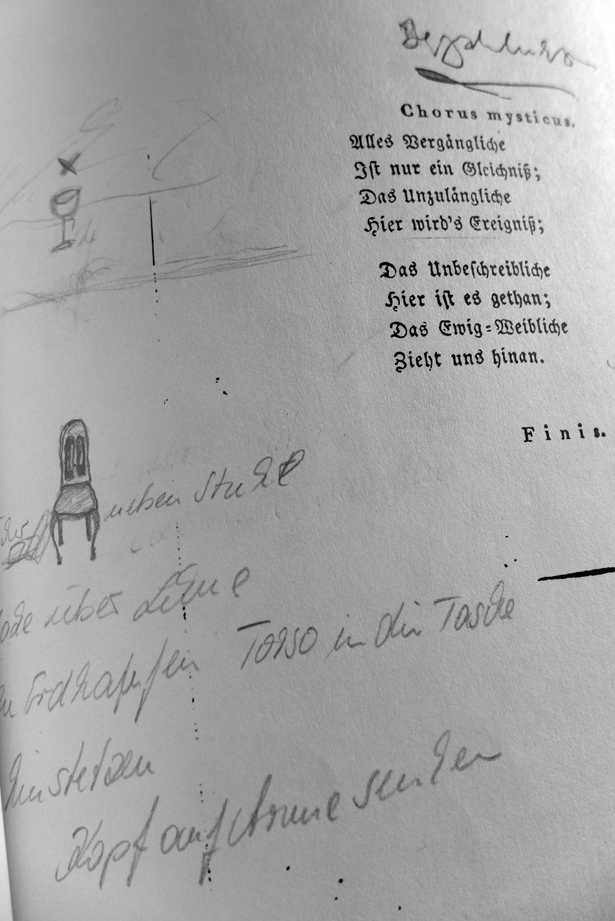 Chorus mysticus.
Alles Vergängliche
Ist nur ein Gleichniß;
Das Unzulängliche
Hier wird's Ereigniß;
Das Unbeschreibliche
Hier ist es gethan;
Das Ewig-Weibliche
Zieht uns hinan.
Finis.
neben Stuhl
über Lehne
Torso in die Tasche
Kopf auf Arme senken